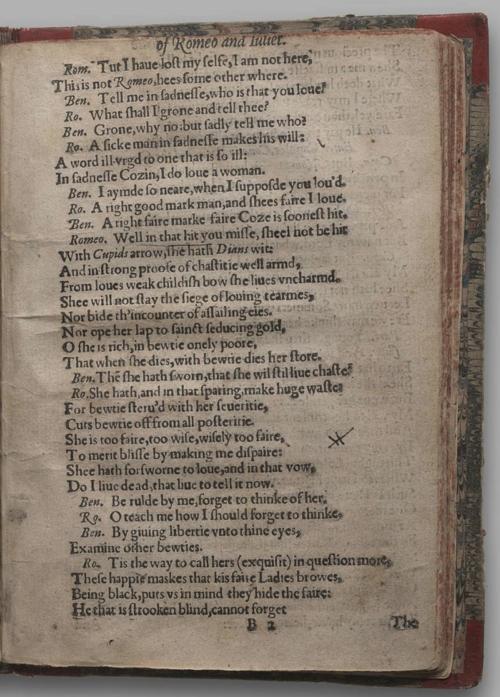 of Romeo and Iuliet.
Rom. Tut I haue lost my selfe, I am not here,
This is not Romeo, hees some other where.
Ben. Tell me in sadnesse, who is that you loue?
Ro. What shall I grone and tell thee?
Ben. Grone, why no: but sadly tell me who?
Ro. A sicke man in sadnesse makes his will:
A word ill vrgd to one that is so ill:
In sadnesse Cozin, I do loue a woman.
Ben. I aymde so neare, when I supposde you lou'd.
Ro. A right good mark man, and shees faire I loue.
Ben. A right faire marke faire Coze is soonest hit.
Romeo. Well in that hit you misse, sheel not be hit
With Cupids arrow, she hath Dians wit:
And in strong proofe of chastitie well armd,
From loues weak childish bow she liues vncharmd.
Shee will not stay the siege of louing tearmes,
Nor bide th'incounter of assailing eies.
Nor ope her lap to sainct seducing gold,
O she is rich, in bewtie onely poore,
That when she dies, with bewtie dies her store.
Ben. Thē she hath sworn, that she wil stil liue chaste?
Ro. She hath, and in that sparing, make huge waste:
For bewtie steru'd with her seueritie,
Cuts bewtie off from all posteritie.
She is too faire, too wise, wisely too faire,
To merit blisse by making me dispaire:
Shee hath forsworne to loue, and in that vow,
Do I liue dead, that liue to tell it now.
Ben. Be rulde by me, forget to thinke of her.
Ro. O teach me how I should forget to thinke,
Ben. By giuing libertie vnto thine eyes,
Examine other bewties.
Ro. Tis the way to call hers (exquisit) in question more,
These happie maskes that kis faire Ladies browes,
Being black, puts vs in mind they hide the faire:
He that is strooken blind, cannot forget
B 2
The